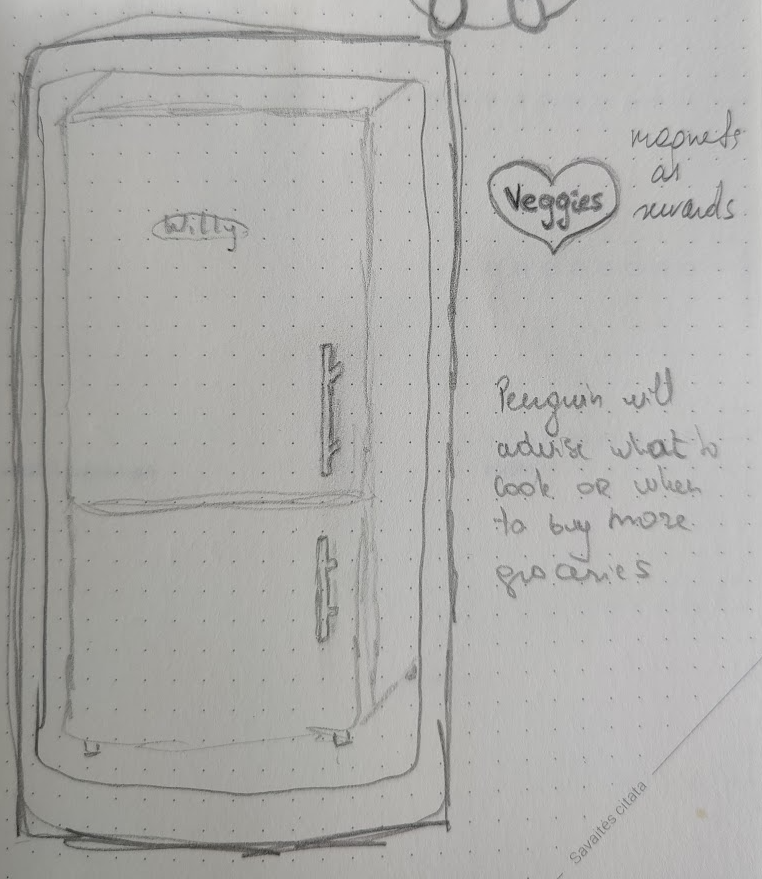 Willy
Veggies
magnets
as
rewards
Penguin will
advise what to
cook or when
to buy more
groceries
Savaitės citata